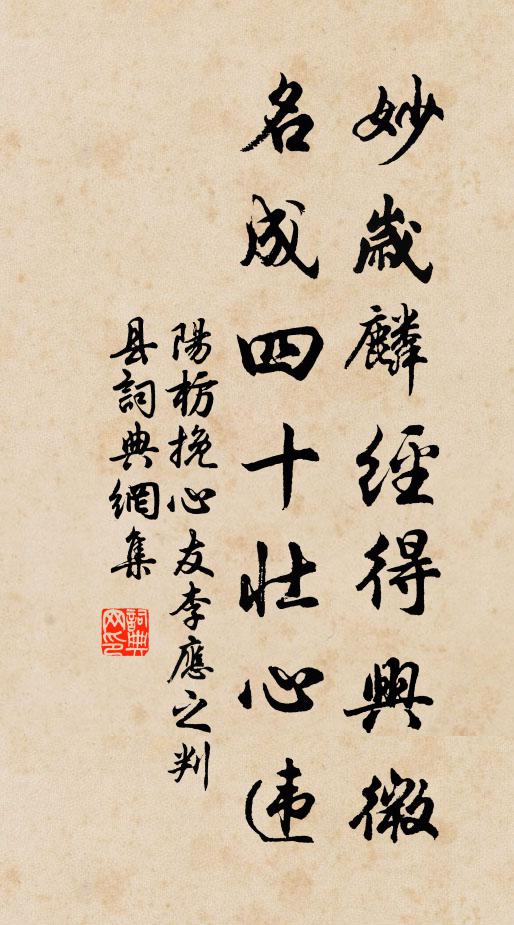 妙歲麟經得興微
名成四十壮心违
陽枋挽心友李應之判
县詞典網集
詞典网印